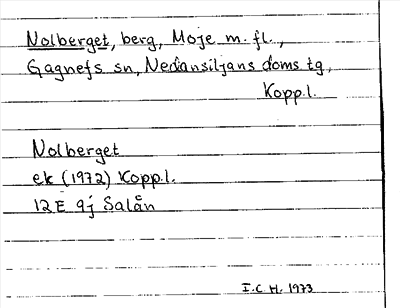 Nolberget, berg, Moje m. fl.,
Gagnefs sn, Nedansiljans doms tg,
Kopp.l.
Nolberget
ek (1972) Kopp.l.
12E 9j Salån
I.C H. 1973